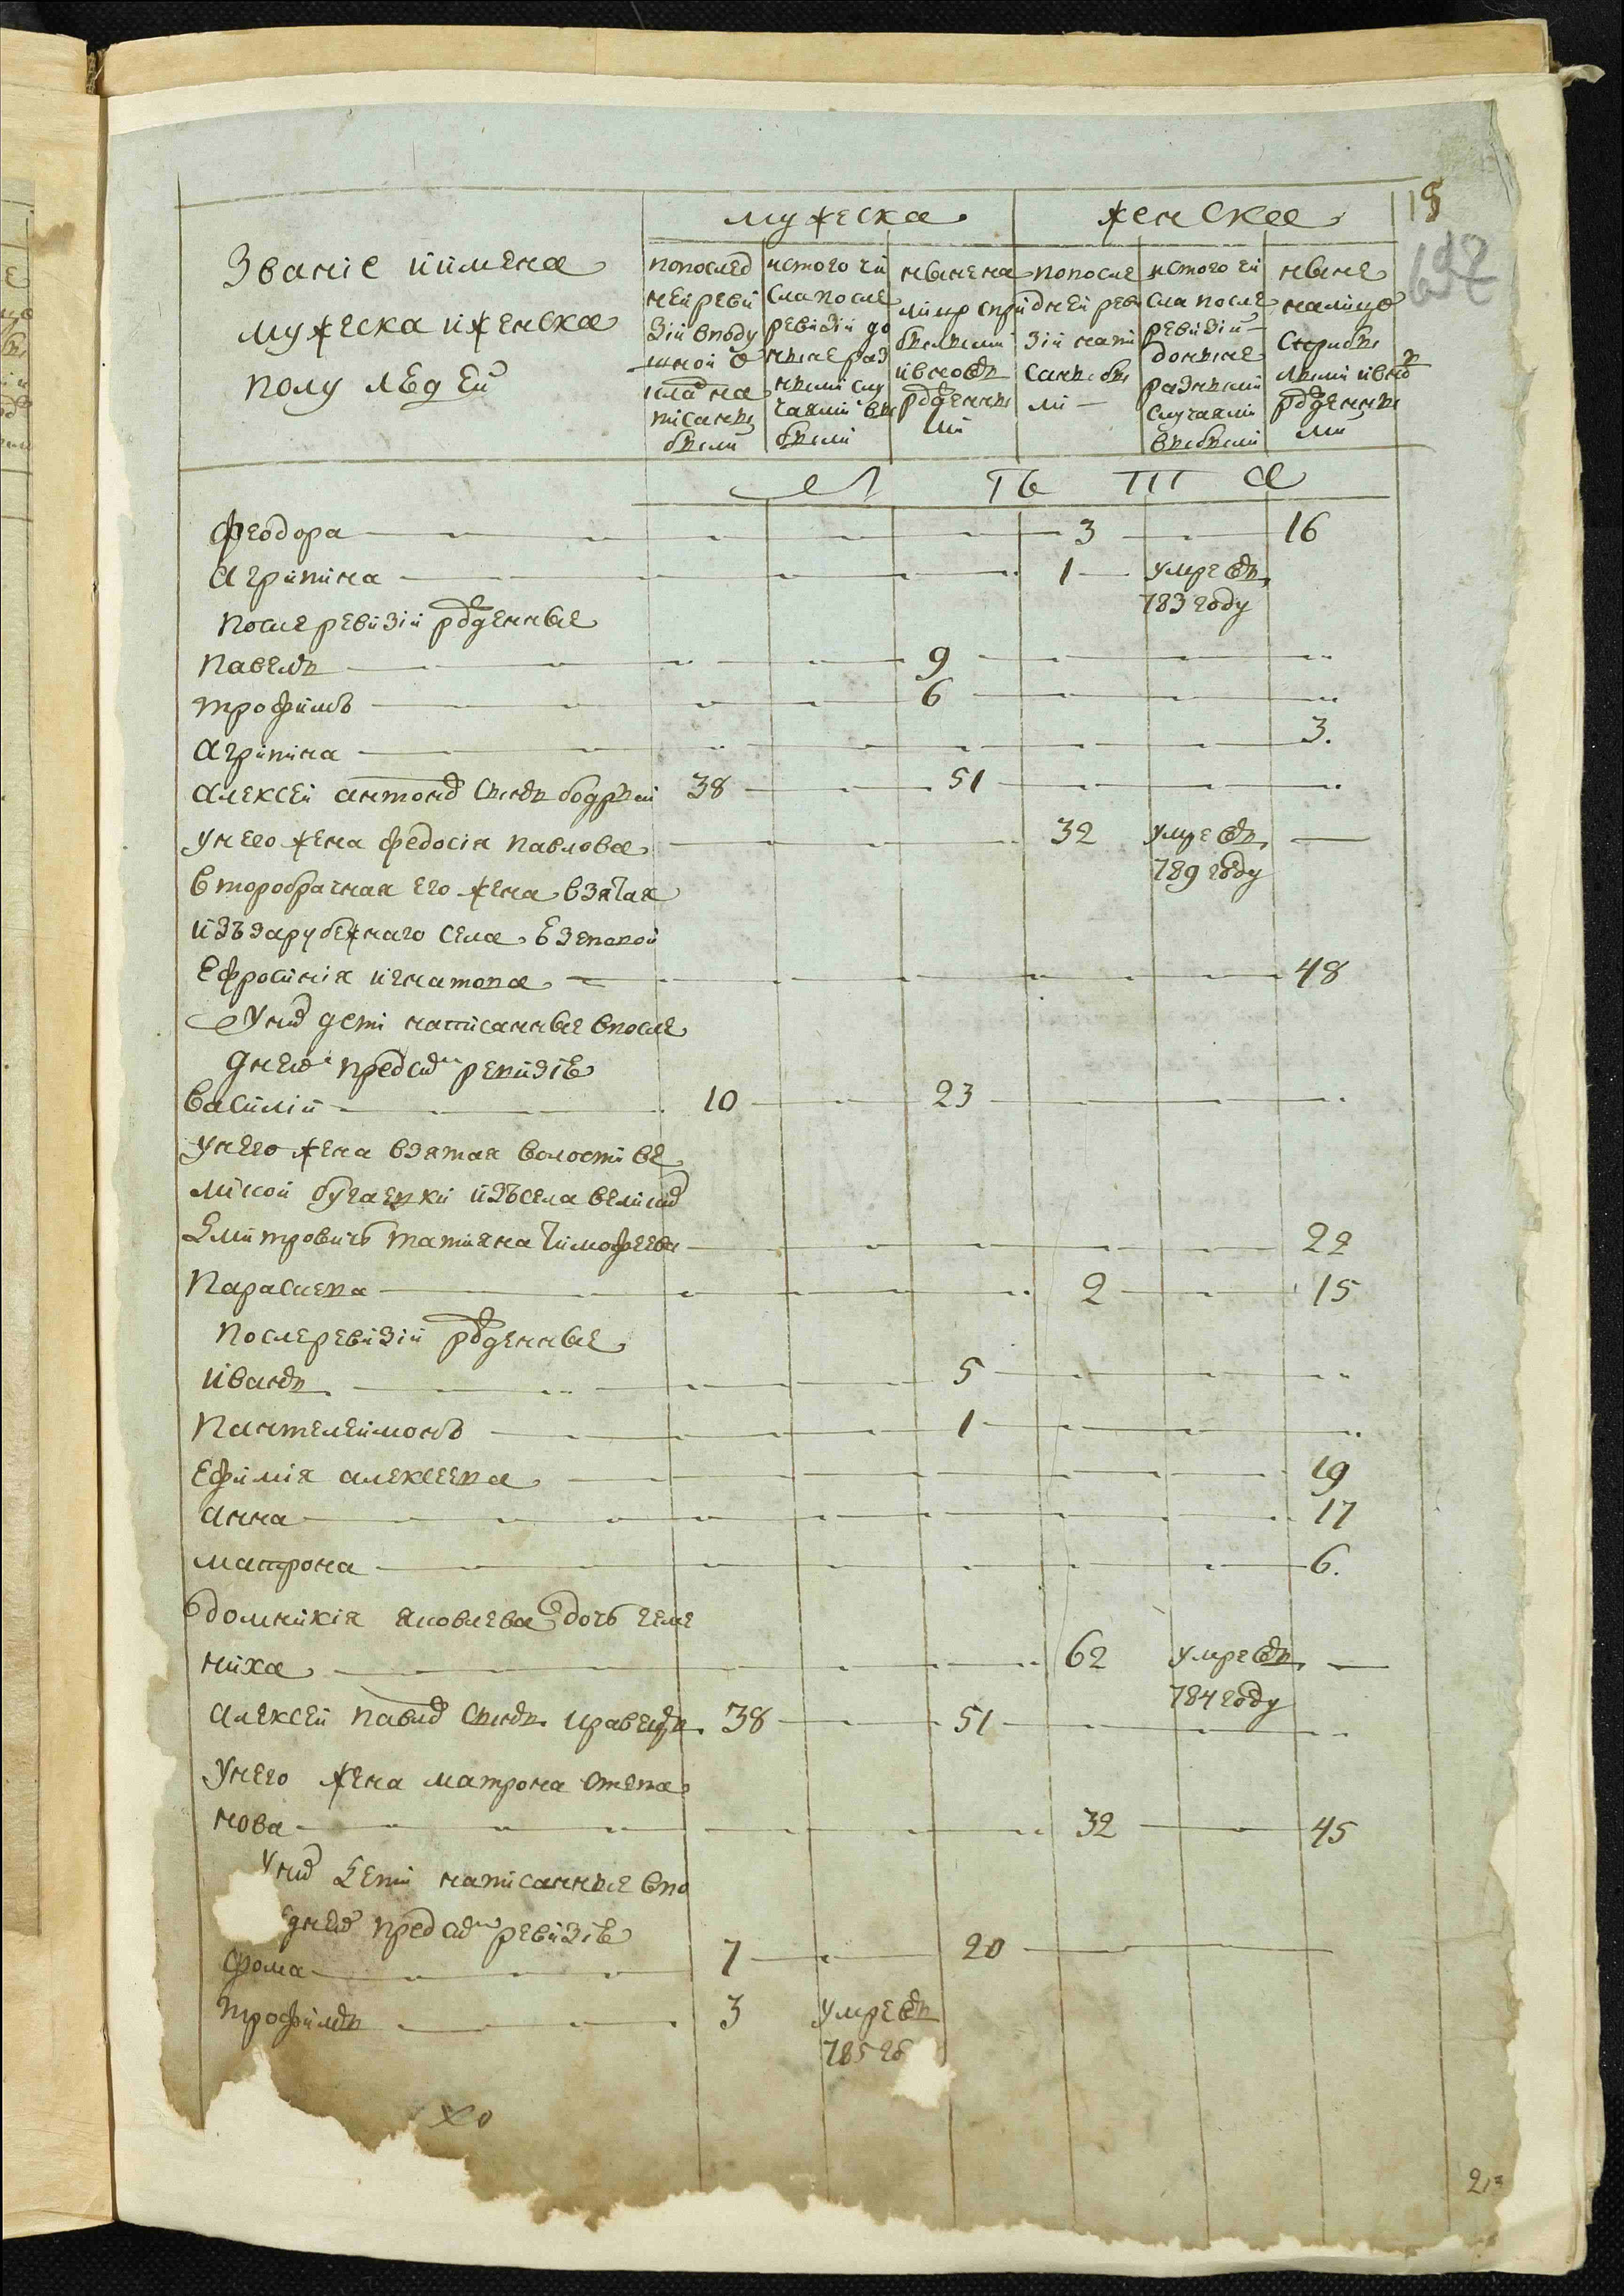 мужеска женска 18
Званіе иимена
мужеска иженска
полу людеи
попослед
неи реви
зіи вподу
шнои о
кладъ на
писаны
были
истого чи
сла после
ревизіи до
ныне раз
ными слу
чаями вы
были
ныне на
лицо спри
былыми
ивновь
рожденны
ми
попосле
днеи реви
зіи напи
саны бы
ли
истого чи
сла после
ревизіи
доныне
разными
случаями
выбыли
ныне
налицо
спрыбы
лыми ивновь
рожденны
ми
Л ѣ т а
Феодора 3 16
Агрипина 1 умре въ
783 году
после ревизіи рожденные
Павелъ 9
трофимъ 6
Агрипина 3.
Алексеи антоновъ сынъ бодрыи 38 51
унего жена федосія павлова 32 умре въ
789 году
второбрачная его жена взятая
изъ зарубежнаго села
Ефросинія игнатова 48
Уних дети написанные впосле
днеи пред сим ревизіѣ
василіи 10 23
унего жена взятая волости ве
ликои бугаевки изъ села великих
Дмитровичь татияна тимофеева 22
Параскева 2 15
после ревизіи рожденные
иванъ 5
Пантелеимонъ 1
Ефимія алексеева 19
анна 17
матрона 6.
вдомникія яковлева дочь
ниха 62 умре въ
784 году
алексеи павловъ сынъ кравецъ 38 51
унего жена матрона степа
нова 32 45
Уних дети написанные впо
днеи пред сим ревизіѣ
фома 7 20
трофимъ 3 умре въ
785 го
213